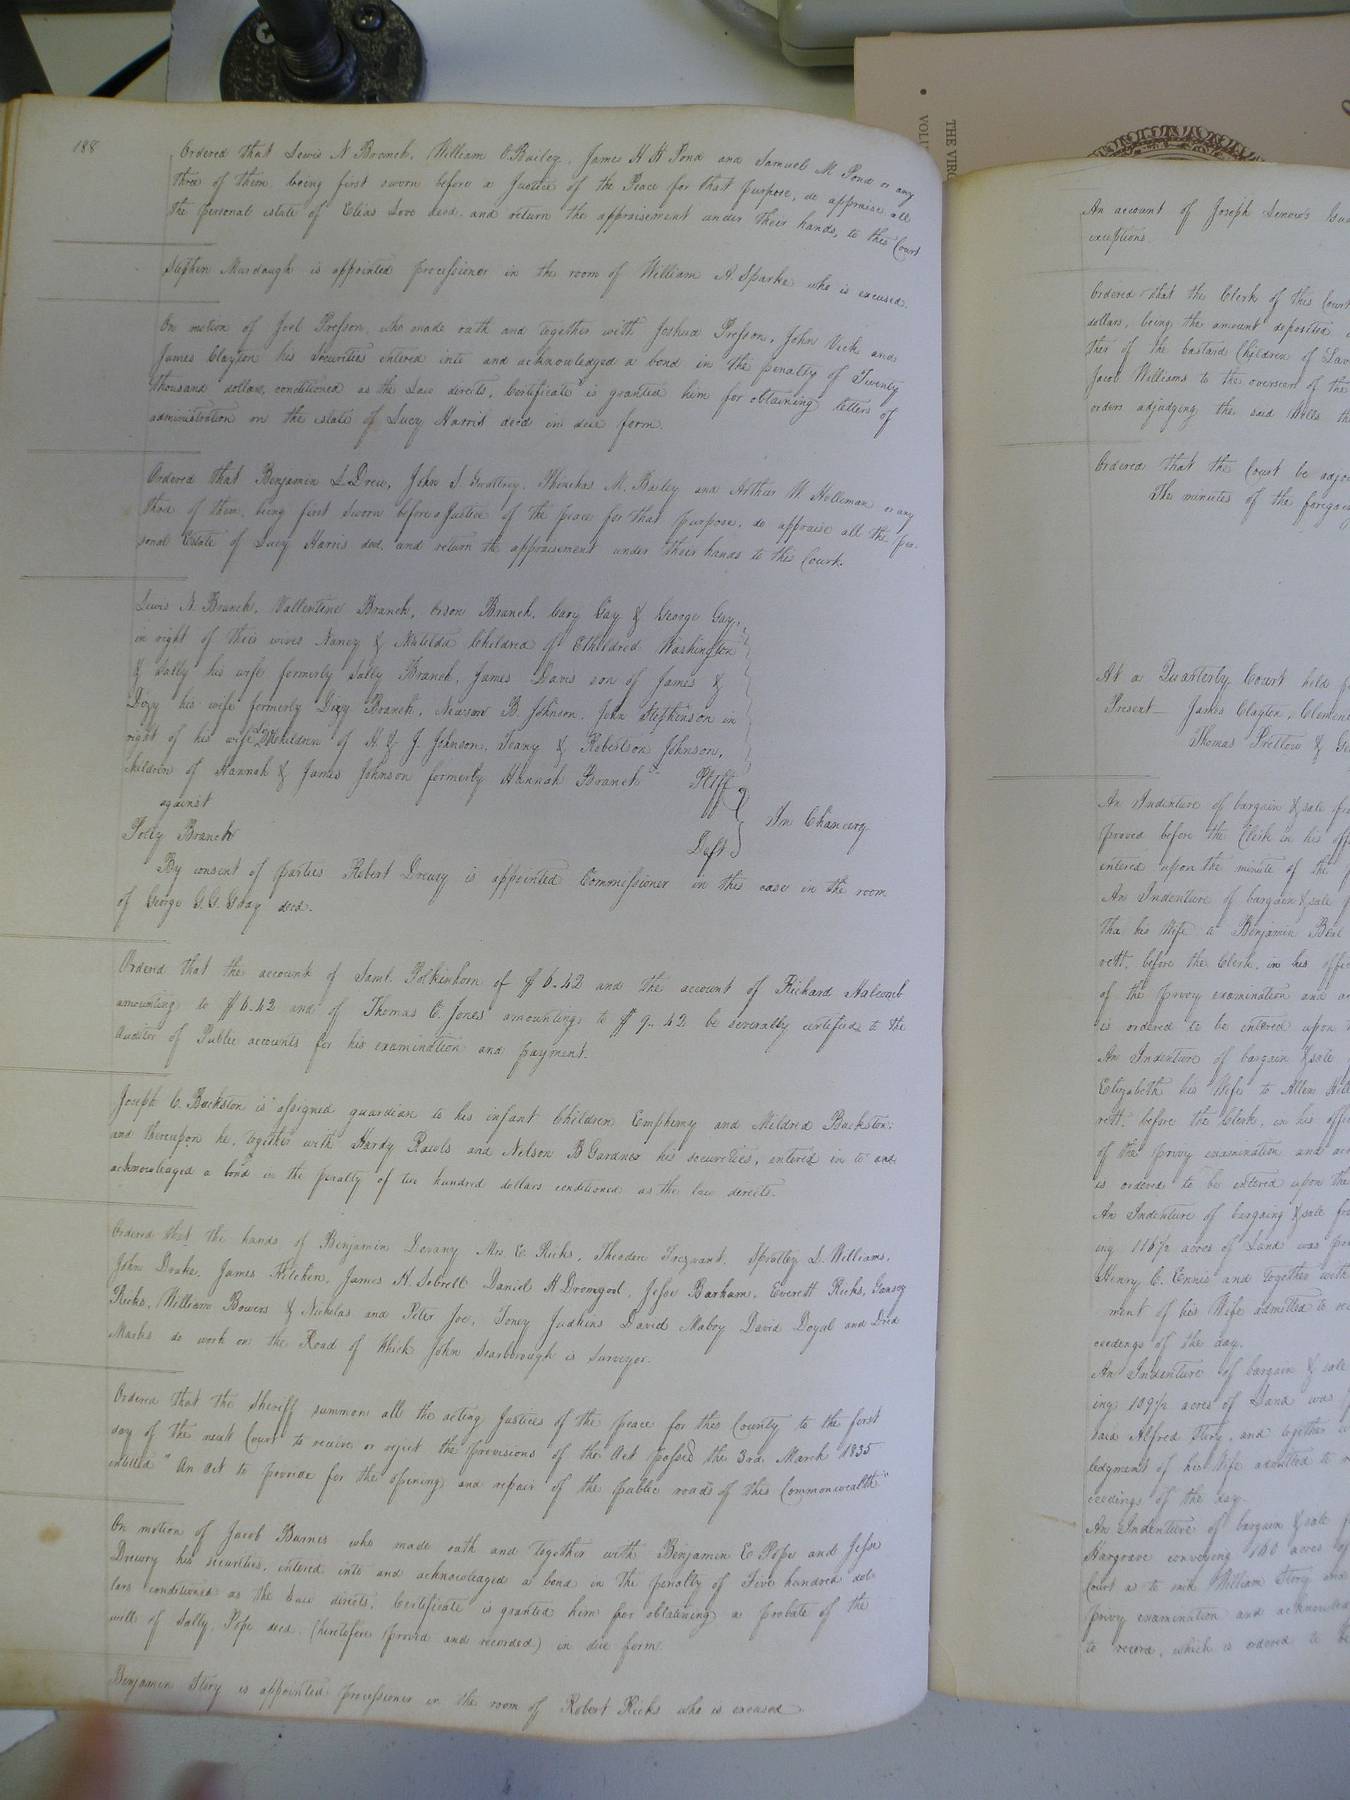 188
Ordered that Lewis N Branch, William C Bailey, James H H Pond and Samuel M Pond or any
three of them being first sworn before a Justice of the Peace for that purpose, do appraise all
the personal estate of Elias Love decd. and return the appraisement under their hands, to this Court
Stephen Murdaugh is appointed processioner in the room of William A Sparks who is excused.
On motion of Joel Presson, who made oath and together with Joshua Presson, John Vick and
James Clayton his Securities entered into and acknowledged a bond in the penalty of Twenty
thousand dollars, conditioned as the Law directs, Certificate is granted him for obtaining letters of
administration on the estate of Lucy Harris decd in due form.
Ordered that Benjamin L Drew, John S. Phinehas M. Bailey and Arthur W Holleman or any
three of them, being first sworn before a Justice of the peace for that purpose, do appraise all the per-
sonal Estate of Lucy Harris decd. and return the appraisement under their hands to this Court.
Lewis N Branch, Vallentine Branch, Orson Branch, Cary Gay & George Gay,
in right of their wives Nancy & Matilda Children of Etheldred Washington
& Sally his wife formerly Sally Branch, James Davis son of James &
Dizy his wife formerly Dizy Branch, B. Johnson, John Stephenson in
right of his wife children of H & J Johnson, Teany & Robertson Johnson,
children of Hannah & James Johnson formerly Hannah Branch Pltff
against In Chancery
Polly Branch Deft
By consent of parties Robert Drewry is appointed Commissioner in this case in the room
of George G. G. Gray decd.
Ordered that the account of Saml. Polkinhorn of $6.42 and the account of Richard Halcomb
amounting to $6.42 and of Thomas C. Jones amounting to $9.42 be severally certified to the
Auditor of Public accounts for his examination and payment.
Joseph C. Backston is assigned guardian to his infant Children Emphemy and Mildred Backston;
and thereupon he, together with Hardy Rawls and Nelson B Gardner his securities, entered in to and
acknowledged a bond in the penalty of two hundred dollars conditioned as the law directs.
Ordered that the hands of Benjamin Devany Mrs. E Ricks, Theodore Trezvant, Spratley S. Williams,
John Drake, James Kitchen, James H Sebrell Daniel H Dromgool, Jesse Barham, Everett Ricks,
Ricks, William Bowers & Nicholas and Peter Joe, Toney Judkins David Maboy David Doyal and Dred
Marks do work on the Road of which John Scarborough is Surveyor.
Ordered that the Sheriff summon all the acting Justices of the peace for this County to the first
day of the next Court to receive or reject the provisions of the Act passed the 3rd March 1835
entitled "An Act to provide for the opening and repair of the public roads of this Commonwealth"
On motion of Jacob Barnes who made oath and together with Benjamin E Pope and Jesse
Drewry his securities, entered into and acknowledged a bond in the penalty of Five hundred dol-
lars conditioned as the Law directs, Certificate is granted him for obtaining a probate of the
will of Sally Pope decd. (heretofore proved and recorded) in due form.
Benjamin Story is appointed processioner in the room of Robert Ricks who is excused
THE VIR
VOLU
An account of Joseph Lenow's
exceptions.
Ordered that the Clerk of this Court
dollars, being the amount deposited
ther of the bastard Children of
Jacob Williams to the overseers of the
orders adjudging the said Wells
Ordered that the Court be
The minutes of the
At a Quarterly Court held
Present James Clayton, Clement
Thomas Pretlow &
An Indenture of bargain & sale
proved before the Clerk in his
entered upon the minute of the
An Indenture of bargain & sale
tha his Wife to Benjamin
rett, before the Clerk, in his
of the privy examination and
is ordered to be entered upon
An Indenture of bargain & sale
Elizabeth his Wife to Allen
rett, before the Clerk, in his
of the privy examination and
is ordered to be entered upon the
An Indenture of bargaing & sale
ing 118½ acres of Land was
Henry C. Ennis and Together with
ment of his Wife admitted to
ceedings of the day.
An Indenture of bargain & sale
ing 109½ acres of Land was
said Alfred Story, and together
ledgment of his Wife admitted to
ceedings of the day.
An Indenture of bargain & sale
Hargrave conveying 140 acres
Court as to said William Story and
privy examination and
to record, which is ordered to